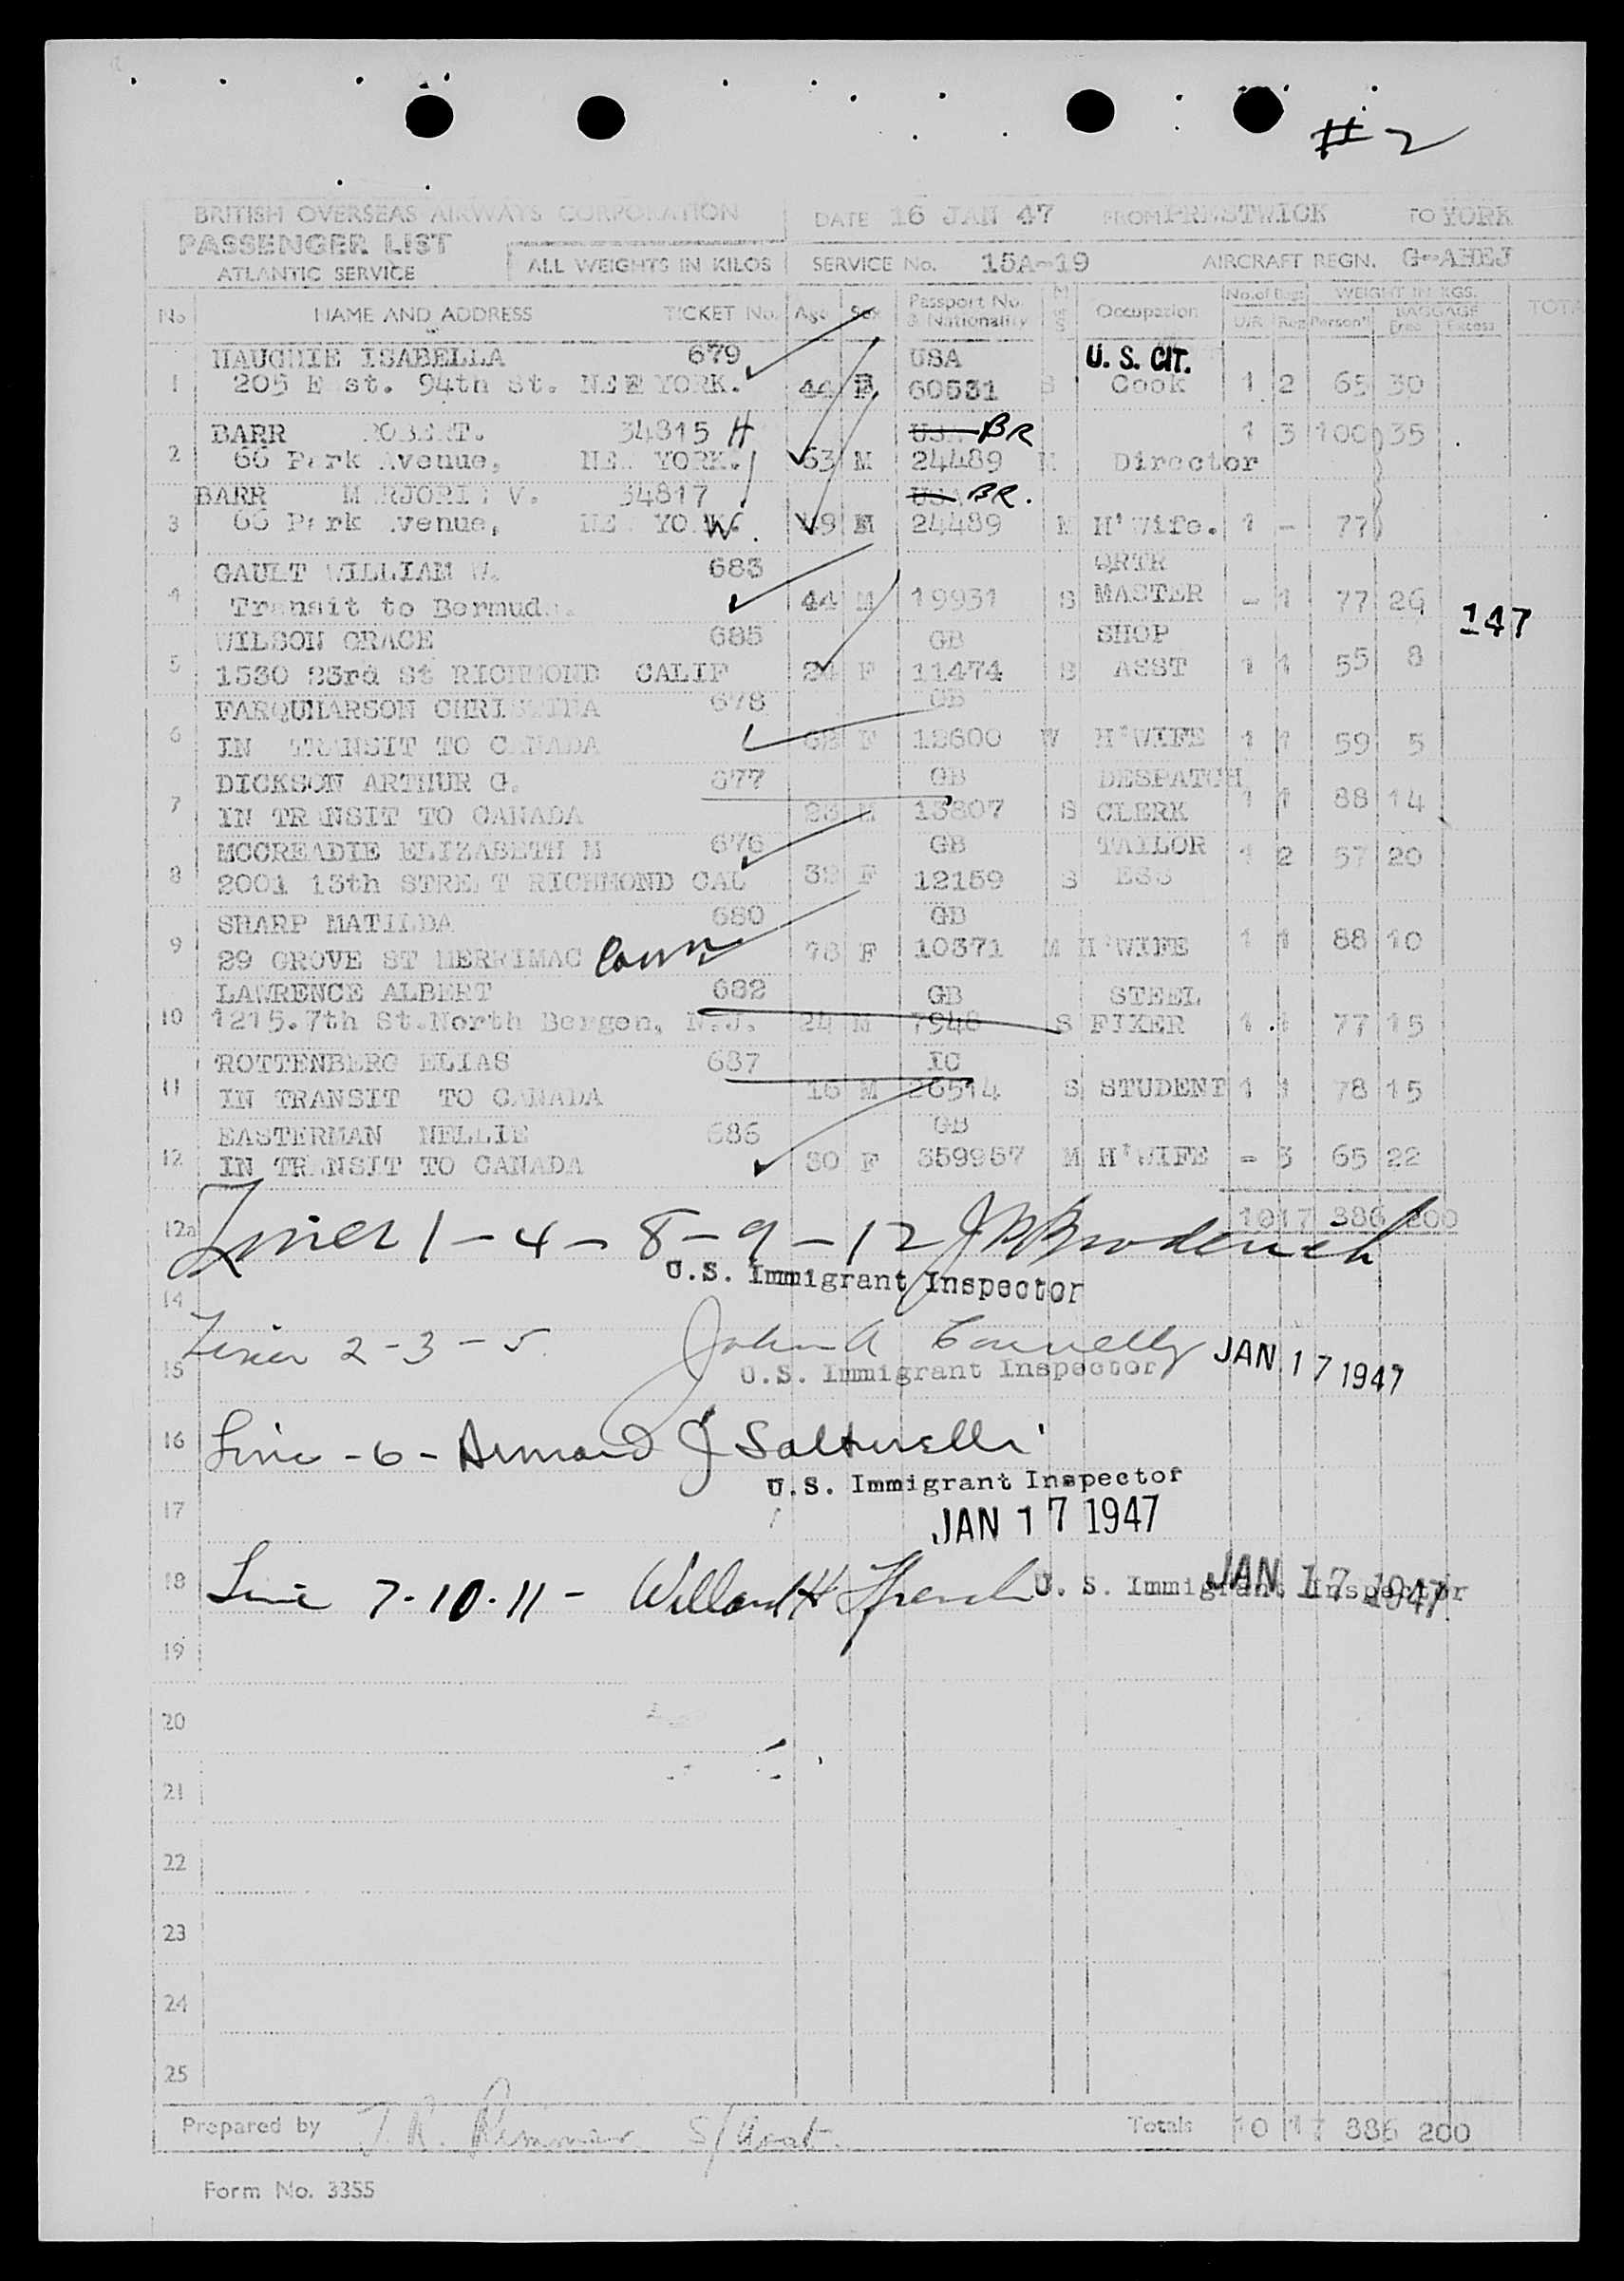 #2
BRITISH OVERSEAS AIRWAYS CORPORATION
PASSENGER LIST
ATLANTIC SERVICE
ALL WEIGHTS IN KILOS
DATE 16 JAN 47 FROM PRESTWICK TO YORK
SERVICE No. 15A-19 AIRCRAFT REGN. G-AHEJ
No NAME AND ADDRESS TICKET No. Age Sex Passport No. & Nationality M S Occupation No. of Bags U/R Reg WEIGHT IN KGS. Person'l BAGGAGE Free Excess TOTA
HAUGHIE ISABELLA 679 USA U. S. CIT.
1 205 E st. 94th St. NEW YORK. 44 F 60531 S Cook 1 2 65 30
BARR ROBERT. 34815 H USA BR 1 3 100 35
2 66 Park Avenue, NEW YORK. 63 M 24489 M Director
BARR MARJORIE V. 34817 USA BR.
3 66 Park Avenue, NEW YORK. W. 49 M 24489 M H'Wife. 1 - 77
GAULT WILLIAM W. 683 QRTR
4 Transit to Bermuda. 44 M 19931 S MASTER - 1 77 26 147
WILSON GRACE 685 GB SHOP
5 1530 23rd St RICHMOND CALIF 24 F 11474 S ASST 1 1 55 8
FARQUHARSON CHRISTINA 678 GB
6 IN TRANSIT TO CANADA 62 F 12600 W H'WIFE 1 1 59 5
DICKSON ARTHUR G. 677 GB DESPATCH
7 IN TRANSIT TO CANADA 23 M 13807 S CLERK 1 1 88 14
MCCREADIE ELIZABETH M 676 GB TAILOR
8 2001 13th STREET RICHMOND CAL 32 F 12159 S ESS 1 2 57 20
SHARP MATILDA 680 GB
9 29 GROVE ST MERRIMAC 78 F 10371 M H'WIFE 1 1 88 10
LAWRENCE ALBERT 682 GB STEEL
10 1215.7th St.North Bergen, N.J. 24 M 7948 S FIXER 1 1 77 15
ROTTENBERG ELIAS 687 IC
11 IN TRANSIT TO CANADA 16 M 26514 S STUDENT 1 1 78 15
EASTERMAN NELLIE 686 GB
12 IN TRANSIT TO CANADA 30 F 359957 M H'WIFE - 3 65 22
12a 1017 886 200
Lines 1-4-8-9-12 J B Broderick
U.S. Immigrant Inspector
14
Lines 2-3-5. John A Connelly JAN 17 1947
15 U.S. Immigrant Inspector
16 Line -6- Armand J Salturelli
U.S. Immigrant Inspector
17 JAN 17 1947
18 Line 7.10.11- Willard H French U. S. Immigrant Inspector JAN 17 1947
19
20
21
22
23
24
25
Prepared by Totals 10 17 886 200
Form No. 3355